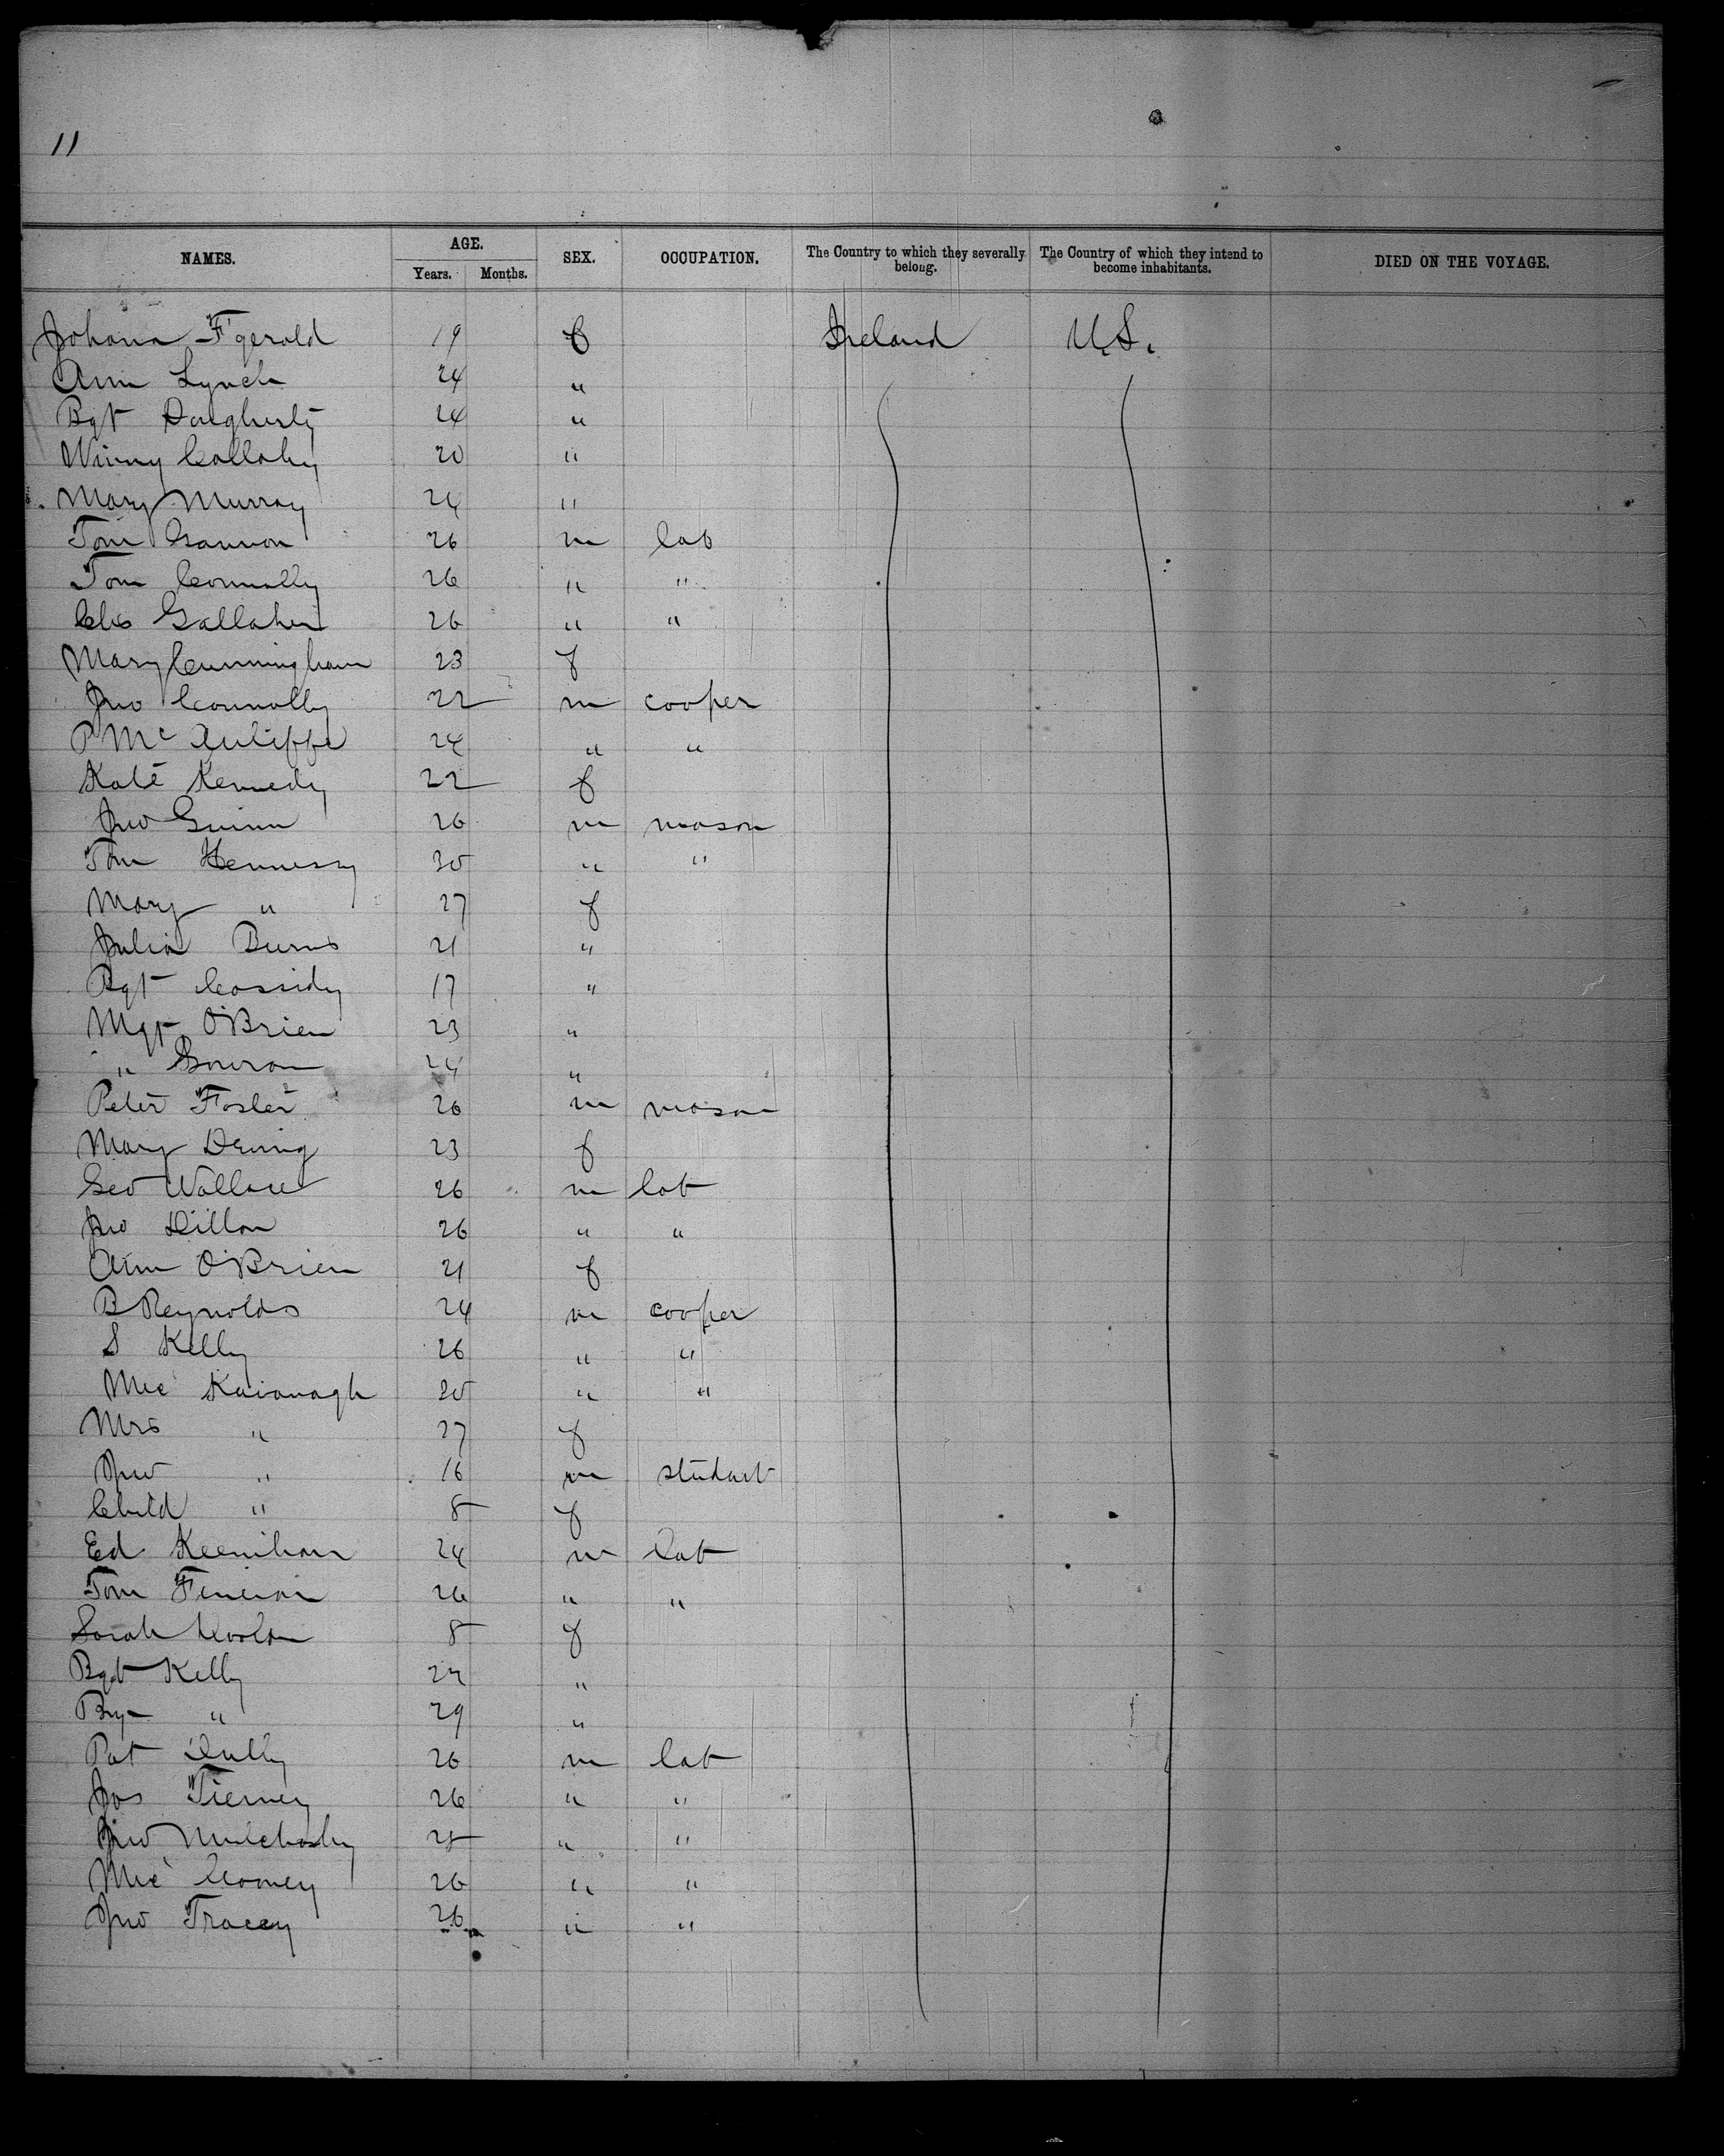 11
NAMES. AGE. SEX. OCCUPATION. The Country to which they severally belong. The Country of which they intend to become inhabitants. DIED ON THE VOYAGE.
Years. Months.
Johana F'gerald 19 f Ireland U.S.
Ann Lynch 24 "
Bgt Dougherty 24 "
Winny Collahy 20 "
Mary Murray 24 "
Tom Gannon 26 m lab
Tom Connolly 26 " "
Chs Gallaher 26 " "
Mary Cunningham 23 f
Jno Connolly 22 m cooper
P McAuliffe 24 " "
Kate Kennedy 22 f
Jno Guinn 26 m mason
Tom Hennessy 30 " "
Mary " 27 f
Julia Burns 21 "
Bgt Cassidy 17 "
Mgt O'Brien 23 "
" 24 "
Peter Foster 26 m mason
Mary 23 f
Geo Wallace 26 m lab
Jno Dillon 26 " "
Ann O'Brien 21 f
B Reynolds 24 m cooper
S Kelly 26 " "
Mic Kavanagh 30 " "
Mrs " 27 f
Jno " 16 m student
Child " 8 f
Ed Keenihan 24 m lab
Tom 26 " "
Sarah 8 f
Bgt Kelly 22 "
" 29 "
Pat Dully 26 m lab
Jos Tierney 26 " "
Jno " "
Mic Cooney 26 " "
Jno Tracey 26 " "